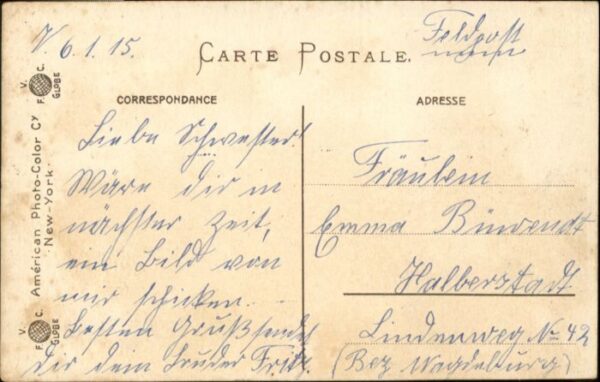 V. 6.1.15.
Feldpost
CARTE POSTALE.
CORRESPONDANCE
ADRESSE
Liebe Schwester!
Wäre dir in
nächster Zeit,
ein Bild von
mir schicken.
Besten Gruß sendet
dir dein Bruder Fritz.
Fräulein
Emma
Halberstadt
Lindenweg No 42
(Bez Magdeburg)
V. C.
F. GLOBE
Américan Photo-Color Cy
New-York.
V. C.
F. GLOBE